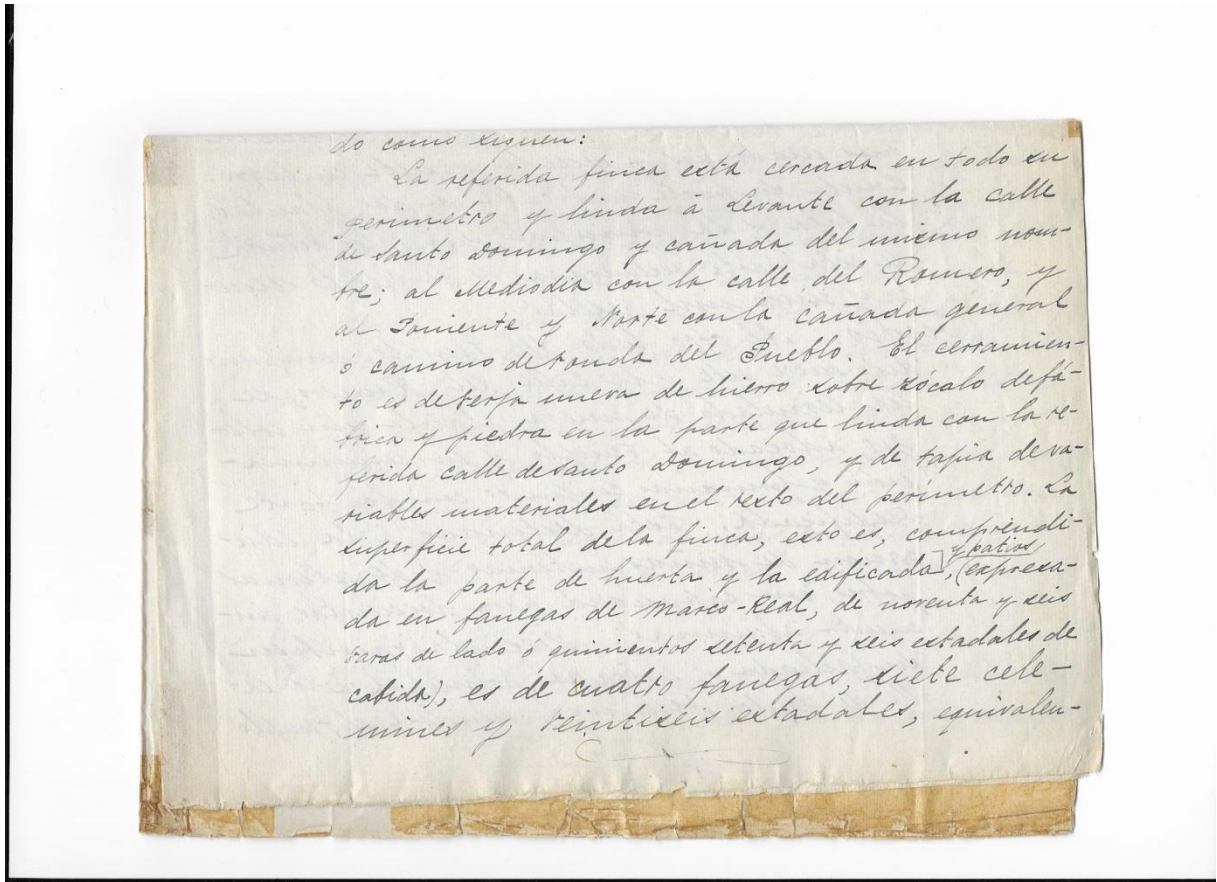 do como siguen:
La referida finca está cercada en todo su
perimetro y linda á Levante con la calle
de Santo Domingo y cañada del mismo nom-
bre; al Mediodia con la calle del Romero, y
al Poniente y Norte con la cañada general
ó camino de ronda del Pueblo. El cerramien-
to es de verja nueva de hierro sobre zócalo de fá-
brica y piedra en la parte que linda con la re-
ferida calle de Santo Domingo, y de tapia de va-
riables materiales en el resto del perímetro. La
superficie total de la finca, esto es, comprendi-
da la parte de huerta y la edificada y patios, (expresa-
da en fanegas de Marco-Real, de noventa y seis
varas de lado ó quinientos setenta y seis estadales de
cabida), es de cuatro fanegas, siete cele-
mines y veintiseis estadales, equivalen-